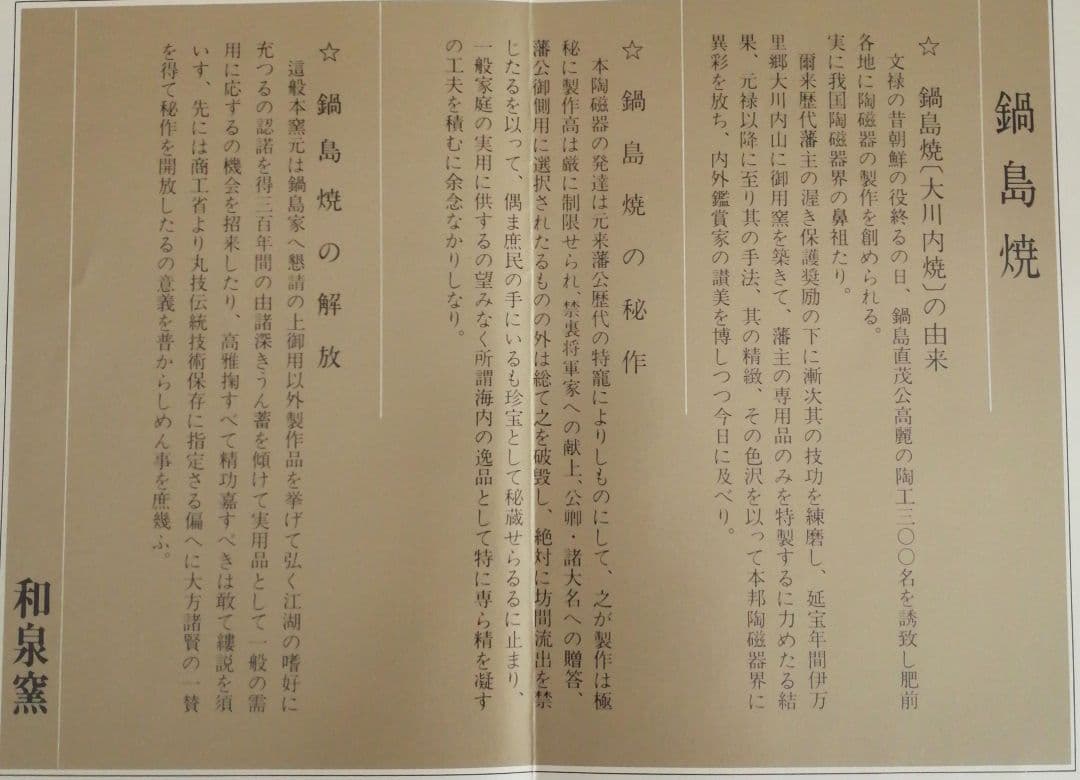 鍋島焼
☆ 鍋島焼〔大川内焼〕の由来
文禄の昔朝鮮の役終るの日、鍋島直茂公高麗の陶工三〇〇名を誘致し肥前
各地に陶磁器の製作を創められる。
実に我国陶磁器界の鼻祖たり。
爾来歴代藩主の渥き保護奨励の下に漸次其の技功を練磨し、延宝年間伊万
里郷大川内山に御用窯を築きて、藩主の専用品のみを特製するに力めたる結
果、元禄以降に至り其の手法、其の精緻、その色沢を以って本邦陶磁器界に
異彩を放ち、内外鑑賞家の讃美を博しつつ今日に及べり。
☆ 鍋島焼の秘作
本陶磁器の発達は元来藩公歴代の特寵によりしものにして、之が製作は極
秘に製作高は厳に制限せられ、禁裏将軍家への献上、公卿・諸大名への贈答、
藩公御側用に選択されたるものの外は総て之を破毀し、絶対に坊間流出を禁
じたるを以って、偶ま庶民の手にいるも珍宝として秘蔵せらるるに止まり、
一般家庭の実用に供するの望みなく所謂海内の逸品として特に専ら精を凝す
の工夫を積むに余念なかりしなり。
☆ 鍋島焼の解放
這般本窯元は鍋島家へ懇請の上御用以外製作品を挙げて弘く江湖の嗜好に
充つるの認諾を得三百年間の由諸深きうん蓄を傾けて実用品として一般の需
用に応ずるの機会を招来したり、高雅掬すべて精功嘉すべきは敢て縷説を須
いす、先には商工省より丸技伝統技術保存に指定さる偏へに大方諸賢の一賛
を得て秘作を開放したるの意義を普からしめん事を庶幾ふ。
和泉窯